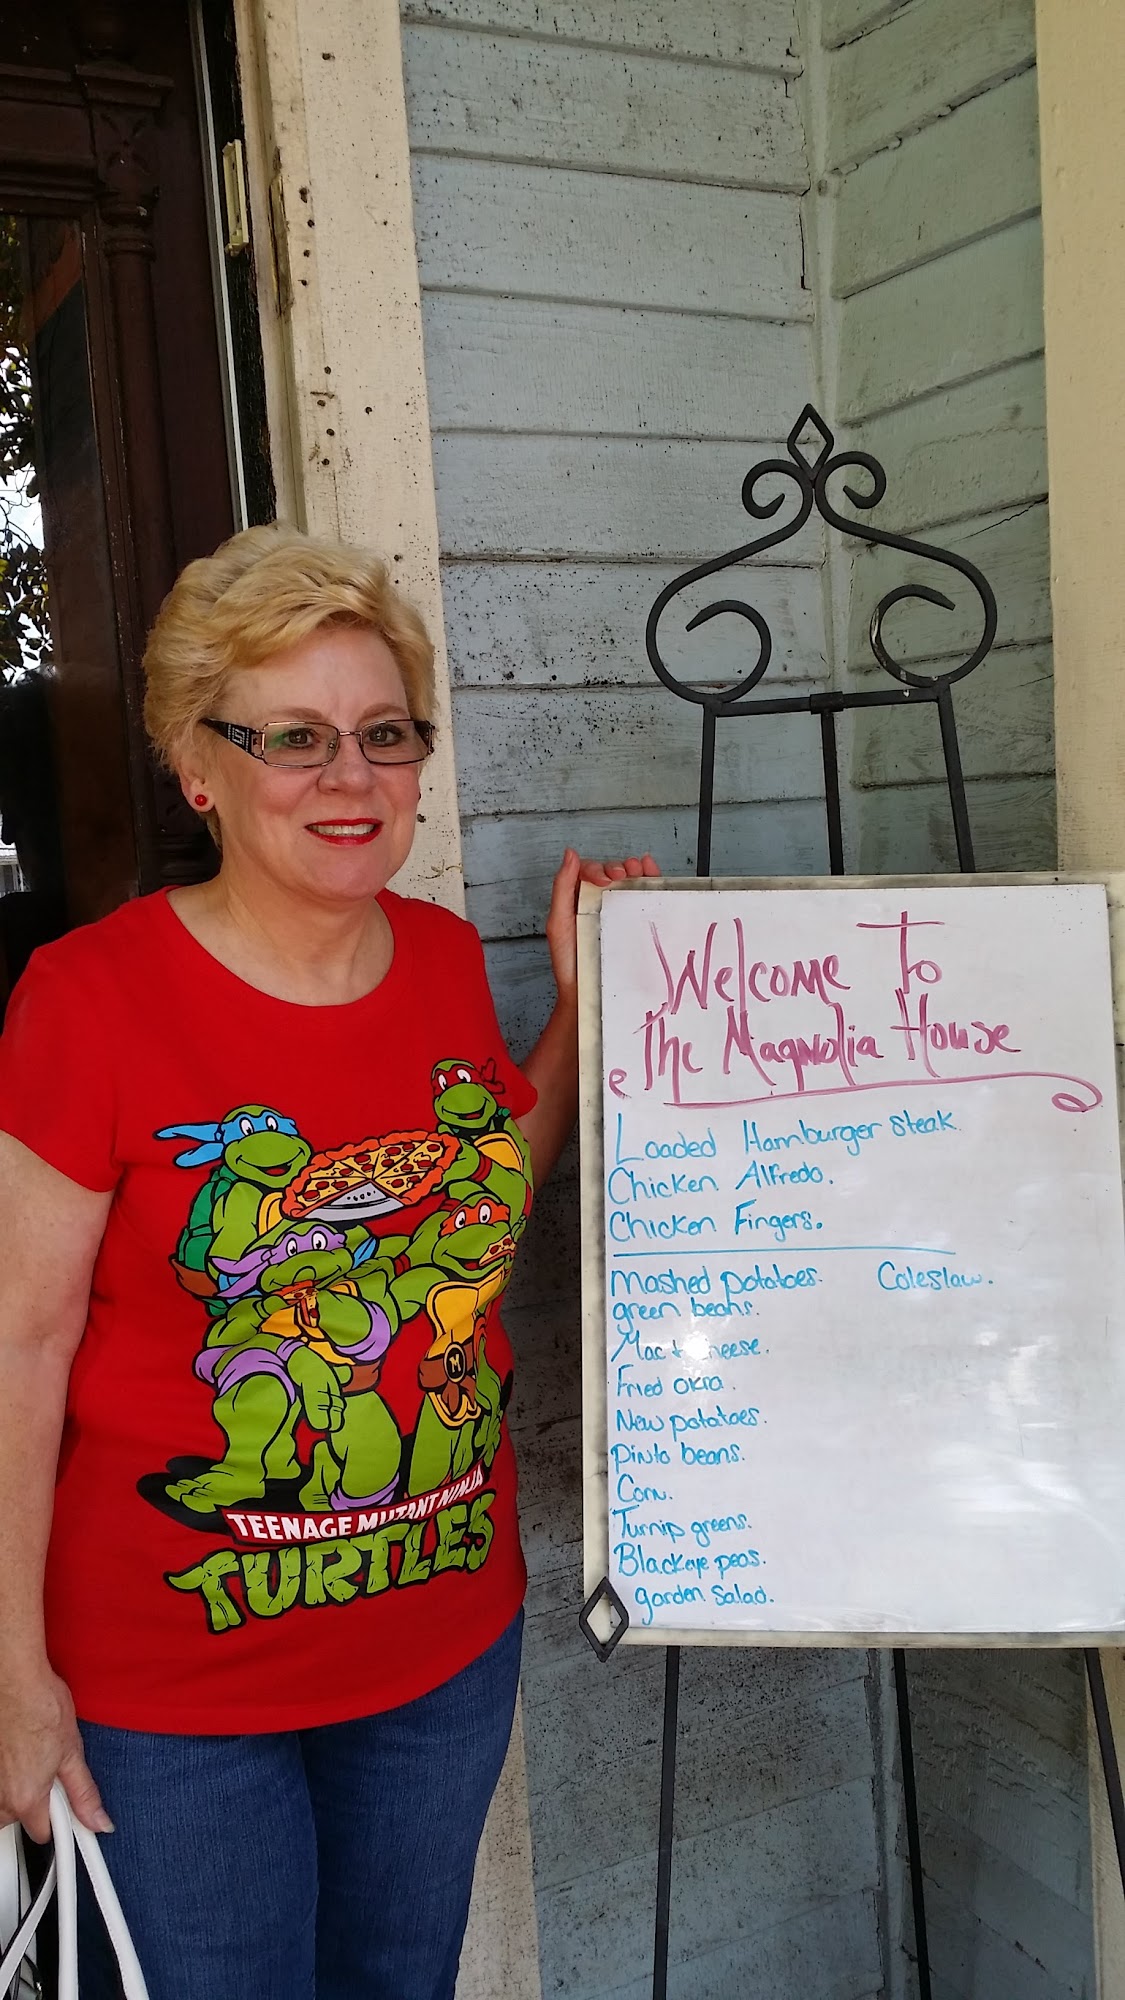 Welcome To
The Magnolia House
Loaded Hamburger steak.
Chicken Alfredo.
Chicken Fingers.
Mashed potatoes. Coleslaw.
green beans.
Mac + cheese.
Fried okra.
New potatoes.
pinto beans.
Corn.
Turnip greens.
Blackeye peas.
garden salad.
TEENAGE MUTANT NINJA
TURTLES
M